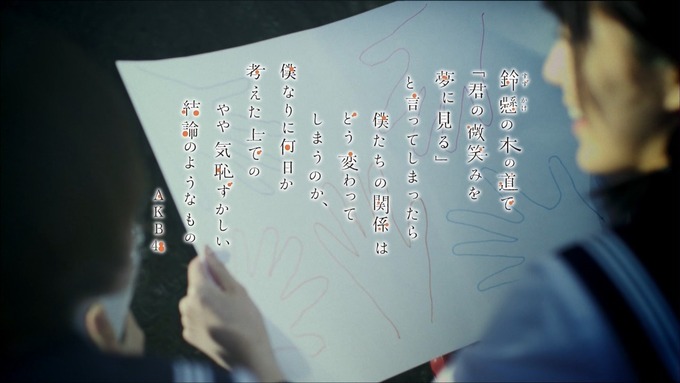 鈴懸の木の道で
「君の微笑みを
夢に見る」
と言ってしまったら
僕たちの関係は
どう変わって
しまうのか、
僕なりに何日か
考えた上での
やや気恥ずかしい
結論のようなもの
AKB48